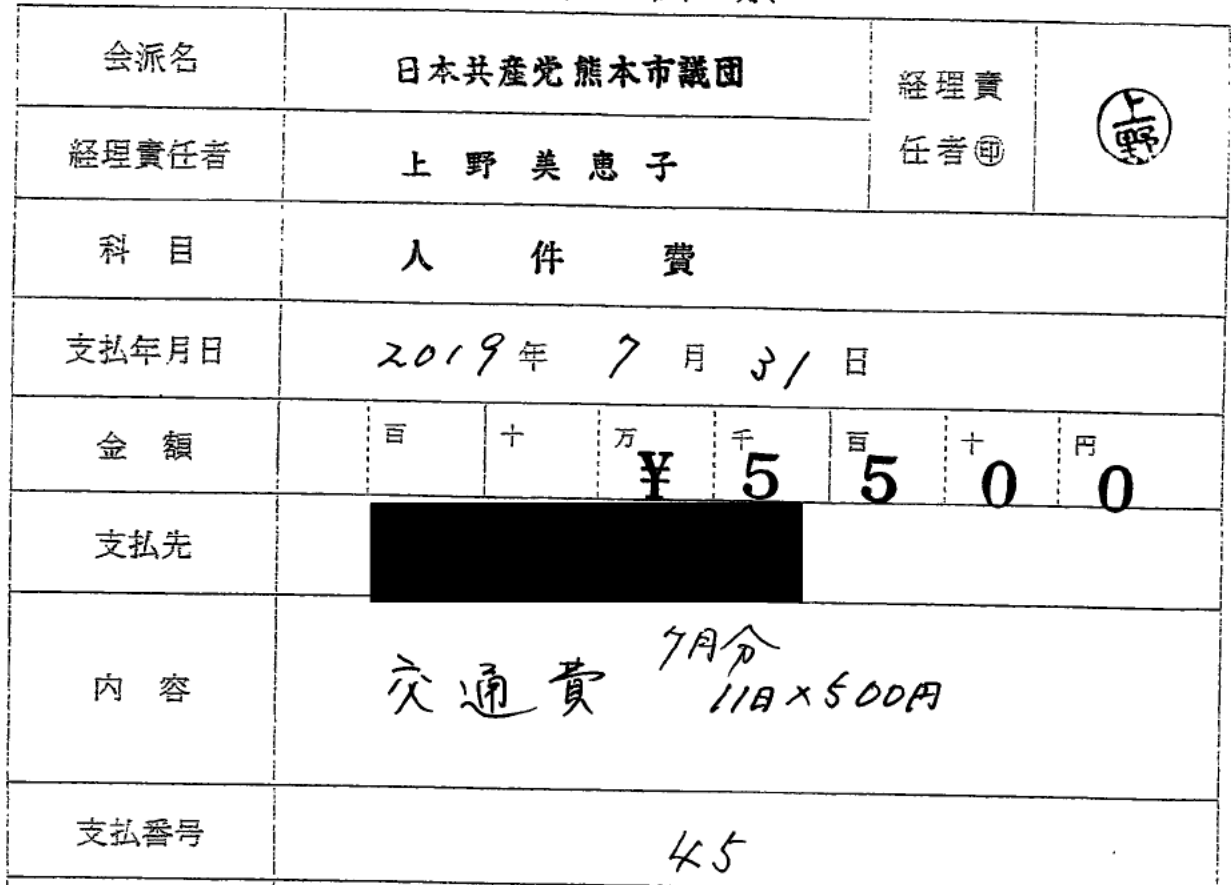 会派名 日本共産党熊本市議団 経理責任者㊞ 上野
経理責任者 上野美恵子
科目 人件費
支払年月日 2019年 7月 31日
金額 百 十 万 千 百 十 円
¥5500
支払先
内容 交通費 7月分
11日×500円
支払番号 45